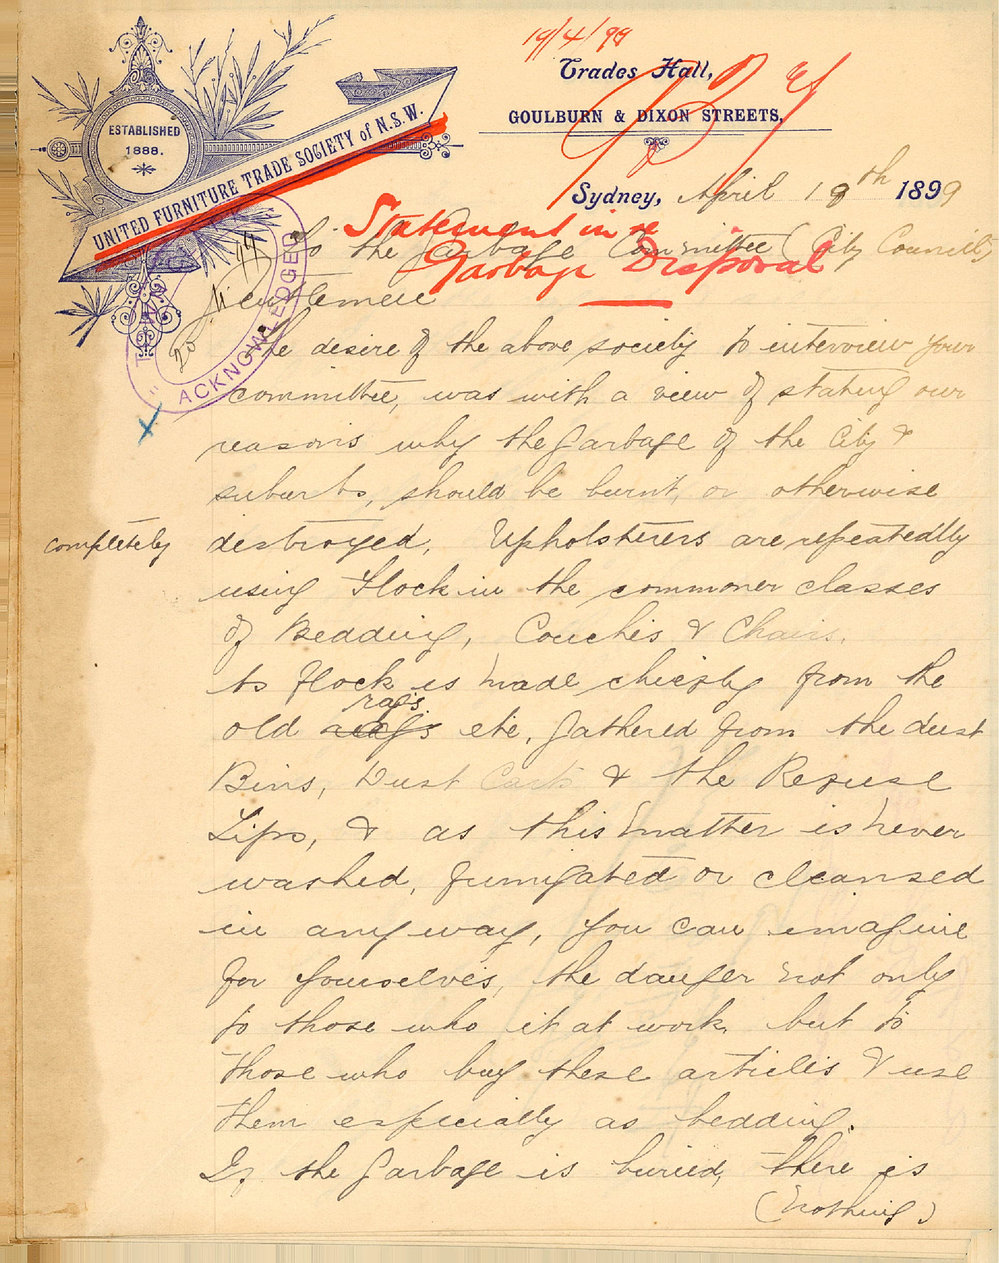 19/4/99
Trades Hall,
GOULBURN & DIXON STREETS,
ESTABLISHED
1888.
UNITED FURNITURE TRADE SOCIETY of N.S.W.
Sydney, April 19th 1899
Statement in re
Garbage Disposal
To the Garbage Committee (City Council)
Gentlemen
ACKNOWLEDGED
The desire of the above society to interview your
committee, was with a view of stating our
reasons why the garbage of the City &
suburbs, should be burnt, or otherwise
completely destroyed. Upholsterers are repeatedly
using Flock in the commoner classes
of Bedding, Couches & Chairs.
As Flock is made chiefly from the
old rags etc, gathered from the dust
Bins, Dust Carts & the Refuse
Tips, & as this matter is never
washed, fumigated or cleansed
in any way, you can imagine
for yourselves, the danger not only
to those who it at work, but to
those who buy these articles & use
them especially as bedding.
If the garbage is buried, there is
(nothing)